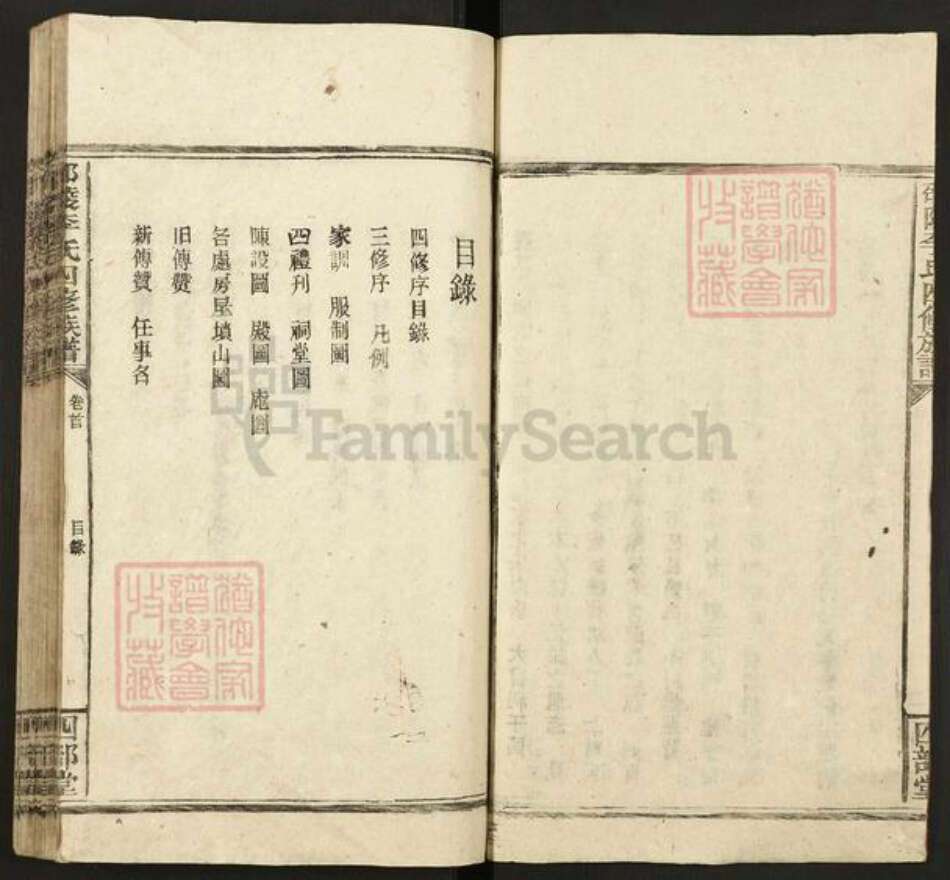 目錄
四修序目錄
三修序 凡例
家訓 服制圖
四禮刊 祠堂圖
陳設圖 殿圖 處圖
各處房屋墳山圖
舊傳贊
新傳贊 任事名
邵陵李氏四修族譜
卷首
目錄
四部堂
四部堂
FamilySearch
譜學會
收藏
譜學會
收藏